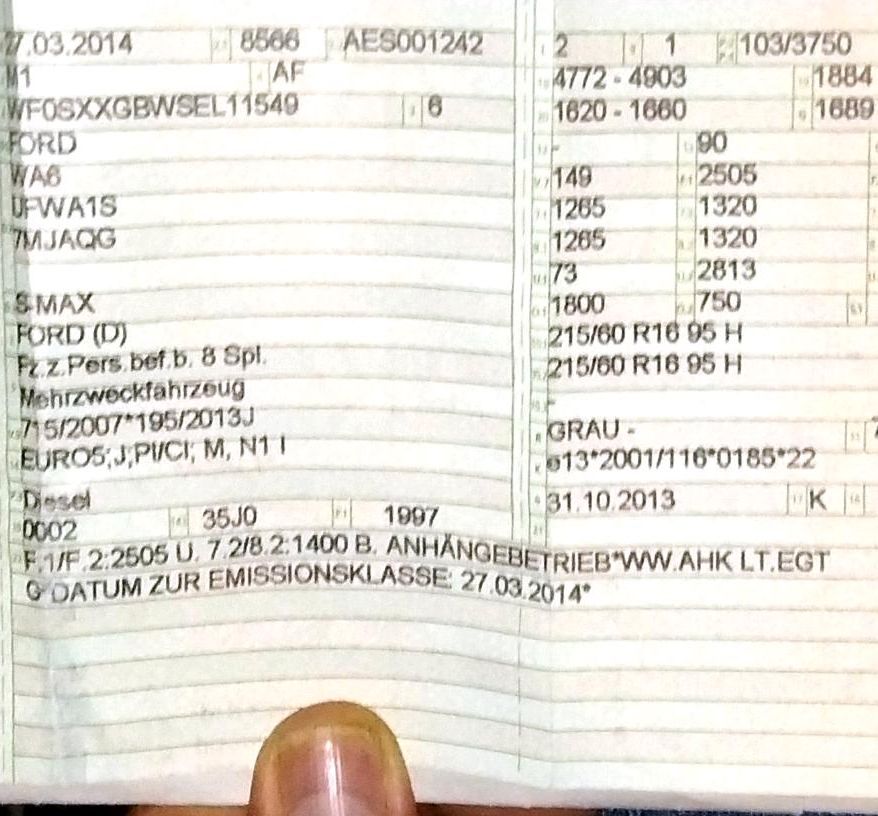 27.03.2014 8566 AES001242 2 1 103/3750
M1 AF 4772 - 4903 1884
WF0SXXGBWSEL11549 6 1620 - 1660 1689
FORD - 90
WA6 149 2505
UFWA1S 1265 1320
7MJAQG 1265 1320
73 2813
S-MAX 1800 750
FORD (D) 215/60 R16 95 H
Fz.z.Pers.bef.b. 8 Spl. 215/60 R16 95 H
Mehrzweckfahrzeug -
715/2007*195/2013J GRAU -
EURO5;J;PI/CI; M, N1 I e13*2001/116*0185*22
Diesel 31.10.2013 K
0002 35J0 1997
F.1/F.2:2505 U. 7.2/8.2:1400 B. ANHÄNGEBETRIEB*WW.AHK LT.EGT
G*DATUM ZUR EMISSIONSKLASSE: 27.03.2014*